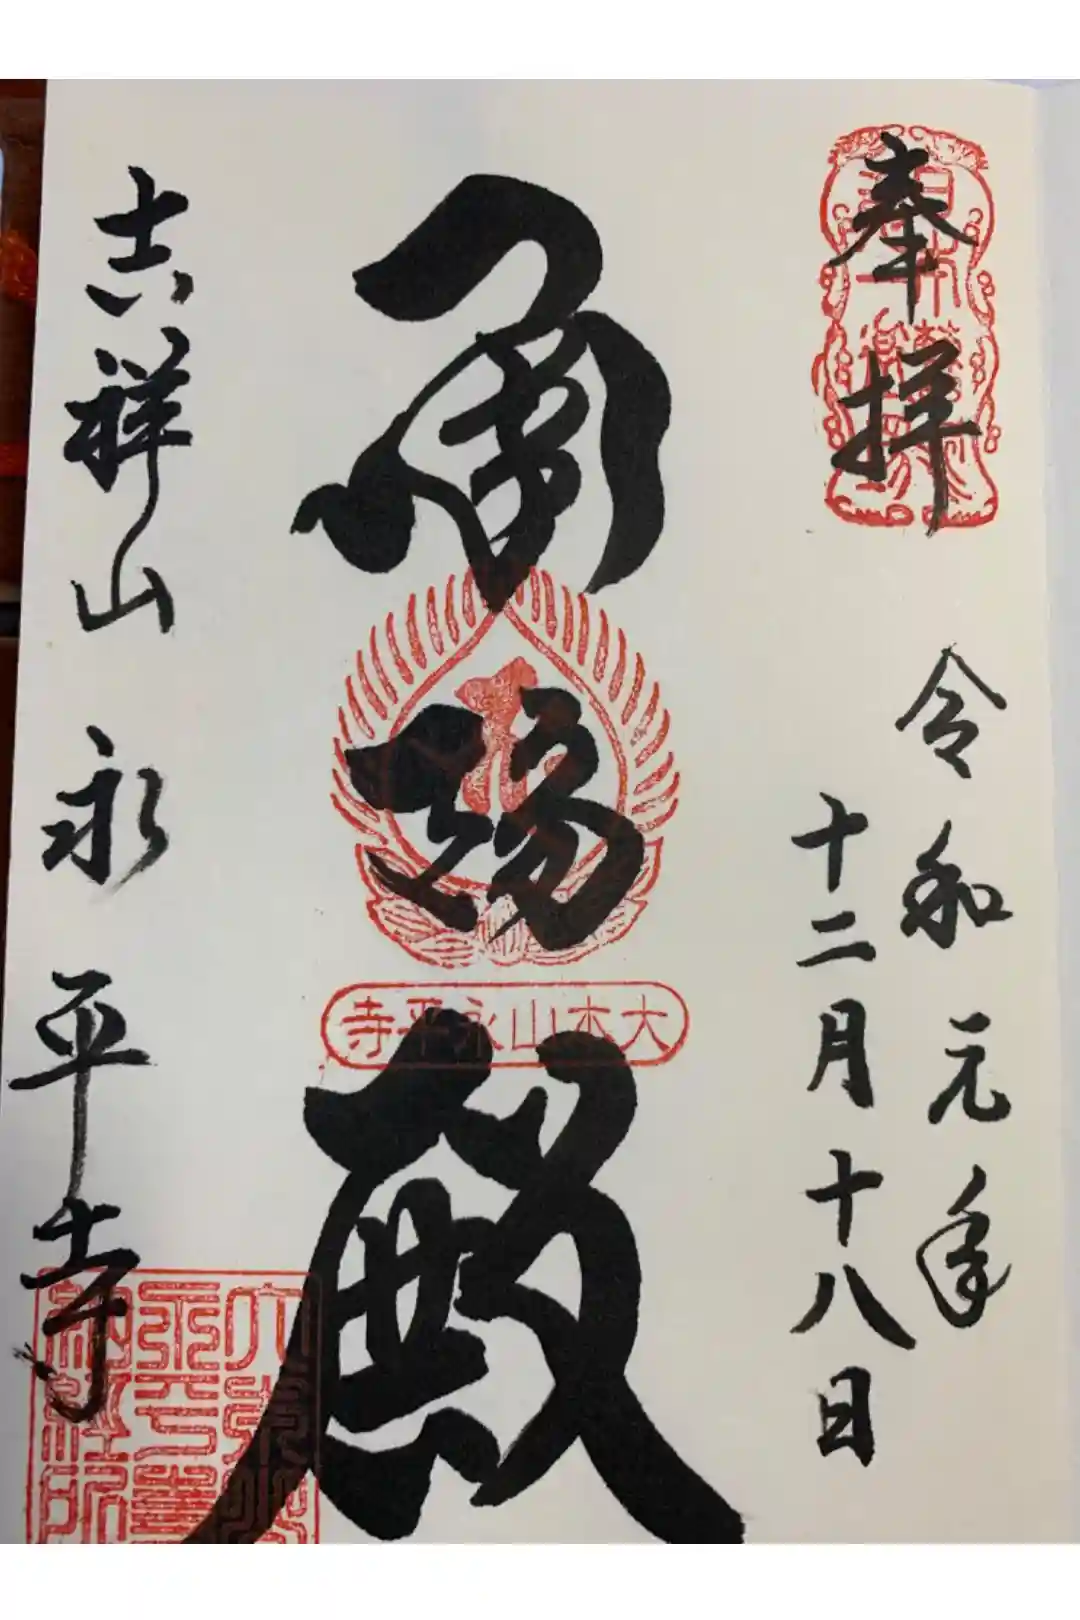 奉拝
令和元年
十二月十八日
承陽殿
大本山永平寺
吉祥山 永平寺